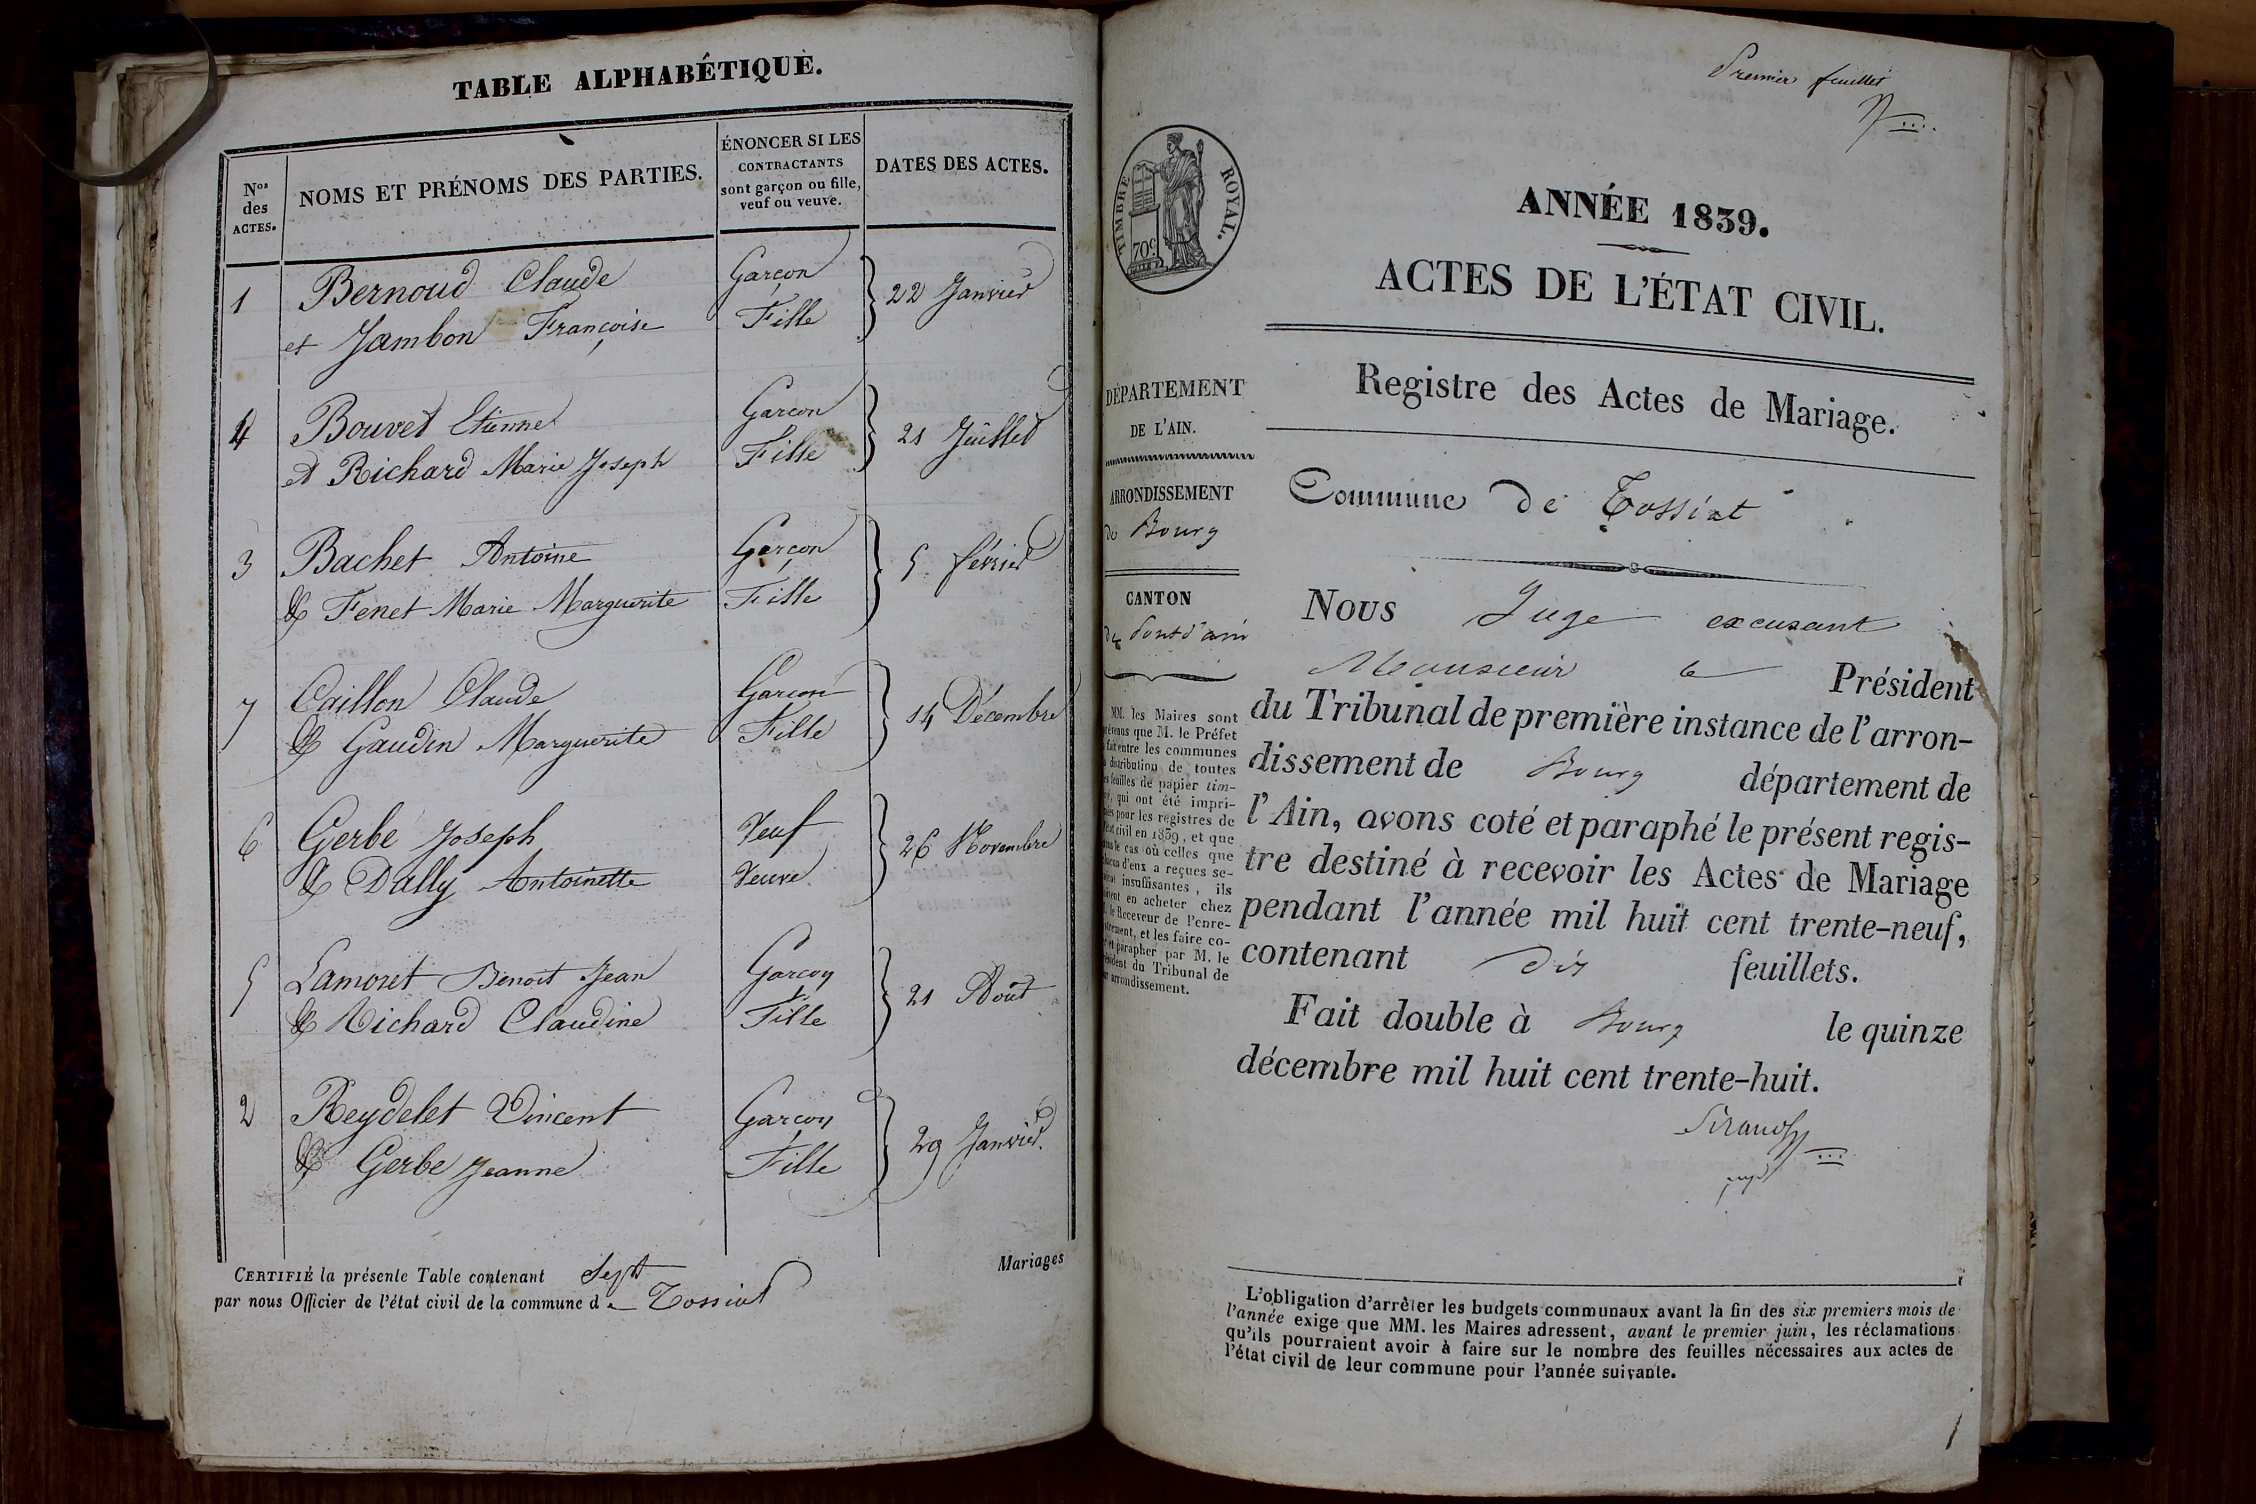 TABLE ALPHABÉTIQUE.
Nos des ACTES.
NOMS ET PRÉNOMS DES PARTIES.
ÉNONCER SI LES
CONTRACTANTS
sont garçon ou fille,
veuf ou veuve.
DATES DES ACTES.
1 Bernoud Claude Garçon 22 Janvier
et Jambon Françoise Fille
4 Bouvet Etienne Garcon 21 Juillet
et Richard Marie Joseph Fille
3 Bachet Antoine Garçon 5 février
& Fenet Marie Marguerite Fille
7 Caillon Claude Garcon 14 Décembre
& Gaudin Marguerite Fille
6 Gerbe Joseph Veuf 26 Novembre
& Dally Antoinette Veuve
5 Lamoret Benoit Jean Garçon 21 Août
& Richard Claudine Fille
2 Reydelet Vincent Garçon 29 Janvier.
& Gerbe Jeanne Fille
CERTIFIÉ la présente Table contenant Sept Mariages
par nous Officier de l'état civil de la commune de Tossiat
Premier feuillet
TIMBRE ROYAL.
70c
ANNÉE 1839.
ACTES DE L'ÉTAT CIVIL.
Registre des Actes de Mariage.
DÉPARTEMENT
DE L'AIN.
ARRONDISSEMENT
de Bourg
CANTON
de Pont d'ain
MM. les Maires sont
prévenus que M. le Préfet
a fait entre les communes
la distribution de toutes
les feuilles de papier tim-
bré, qui ont été impri-
mées pour les registres de
l'état civil en 1839, et que
dans le cas où celles que
chacun d'eux a reçues se-
raient insuffisantes, ils
doivent en acheter chez
M. le Receveur de l'enre-
gistrement, et les faire co-
ter et parapher par M. le
Président du Tribunal de
leur arrondissement.
Commune de Tossiat
Nous Juge excusant
Monsieur le Président
du Tribunal de première instance de l'arron-
dissement de Bourg département de
l'Ain, avons coté et paraphé le présent regis-
tre destiné à recevoir les Actes de Mariage
pendant l'année mil huit cent trente-neuf,
contenant dix feuillets.
Fait double à Bourg le quinze
décembre mil huit cent trente-huit.
L'obligation d'arrêter les budgets communaux avant la fin des six premiers mois de
l'année exige que MM. les Maires adressent, avant le premier juin, les réclamations
qu'ils pourraient avoir à faire sur le nombre des feuilles nécessaires aux actes de
l'état civil de leur commune pour l'année suivante.
1